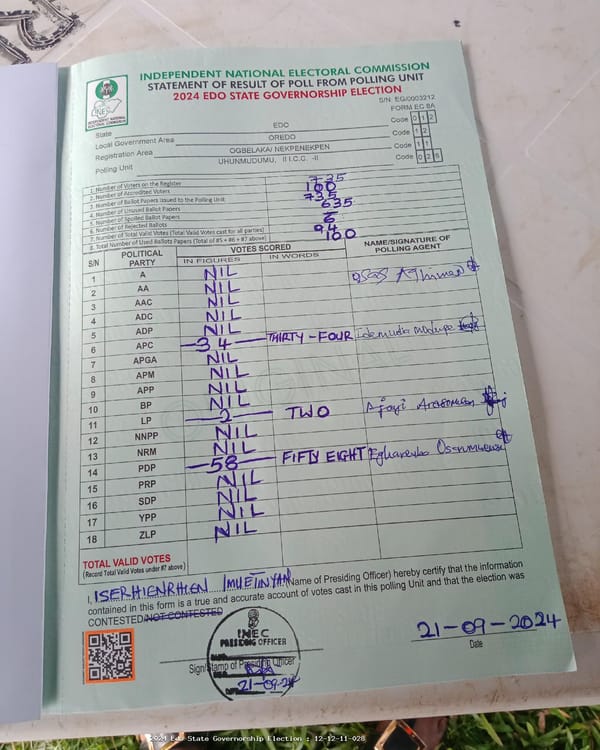 INDEPENDENT NATIONAL ELECTORAL COMMISSION
STATEMENT OF RESULT OF POLL FROM POLLING UNIT
2024 EDO STATE GOVERNORSHIP ELECTION
S/N: EG/0003212
FORM EC 8A
State EDO Code 0 1 2
Local Government Area OREDO Code 1 2
Registration Area OGBELAKA/ NEKPENEKPEN Code 1 1
Polling Unit UHUNMUDUMU, II I.C.C. -II Code 0 2 8
1. Number of Voters on the Register 735
2. Number of Accredited Voters 100
3. Number of Ballot Papers Issued to the Polling Unit 735
4. Number of Unused Ballot Papers 635
5. Number of Spoiled Ballot Papers –
6. Number of Rejected Ballots 6
7. Number of Total Valid Votes (Total Valid Votes cast for all parties) 94
8. Total Number of Used Ballots Papers (Total of #5 + #6 + #7 above) 100
S/N POLITICAL PARTY VOTES SCORED NAME/SIGNATURE OF POLLING AGENT
IN FIGURES IN WORDS
1 A NIL
2 AA NIL
3 AAC NIL
4 ADC NIL
5 ADP NIL
6 APC 34 THIRTY-FOUR
7 APGA NIL
8 APM NIL
9 APP NIL
10 BP NIL
11 LP 2 TWO Ajayi
12 NNPP NIL
13 NRM NIL
14 PDP 58 FIFTY EIGHT
15 PRP NIL
16 SDP NIL
17 YPP NIL
18 ZLP NIL
TOTAL VALID VOTES
(Record Total Valid Votes under #7 above)
I, ISERHIENRHIEN IMUETINYAN (Name of Presiding Officer) hereby certify that the information
contained in this form is a true and accurate account of votes cast in this polling Unit and that the election was
CONTESTED/NOT CONTESTED
INEC
PRESIDING OFFICER
Sign/Stamp of Presiding Officer
21-09-24
21-09-2024
Date
2024 Edo State Governorship Election : 12-12-11-028